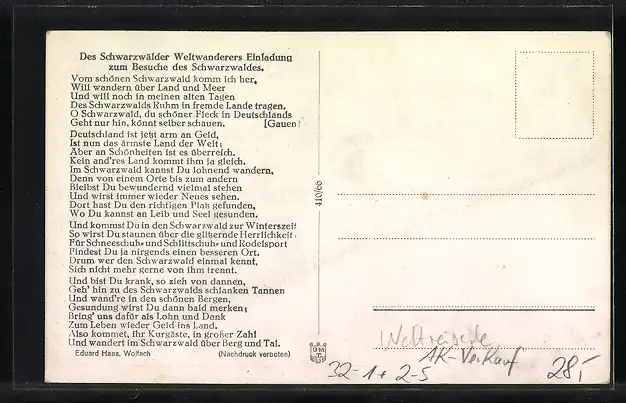 Des Schwarzwälder Weltwanderers Einladung
zum Besuche des Schwarzwaldes.
Vom schönen Schwarzwald komm ich her,
Will wandern über Land und Meer
Und will noch in meinen alten Tagen
Des Schwarzwalds Ruhm in fremde Lande tragen.
O Schwarzwald, du schöner Fleck in Deutschlands
Geht nur hin, könnt selber schauen. [Gauen!
Deutschland ist jetzt arm an Geld,
Ist nun das ärmste Land der Welt;
Aber an Schönheiten ist es überreich.
Kein and'res Land kommt ihm ja gleich.
Im Schwarzwald kannst Du lohnend wandern,
Denn von einem Orte bis zum andern
Bleibst Du bewundernd vielmal stehen
Und wirst immer wieder Neues sehen.
Dort hast Du den richtigen Platz gefunden,
Wo Du kannst an Leib und Seel gesunden.
Und kommst Du in den Schwarzwald zur Winterszeit
So wirst Du staunen über die glitzernde Herrlichkeit.
Für Schneeschuh- und Schlittschuh- und Rodelsport
Findest Du ja nirgends einen besseren Ort.
Drum wer den Schwarzwald einmal kennt,
Sich nicht mehr gerne von ihm trennt.
Und bist Du krank, so zieh von dannen,
Geh' hin zu des Schwarzwalds schlanken Tannen
Und wand're in den schönen Bergen,
Gesundung wirst Du dann bald merken;
Bring' uns dafür als Lohn und Dank
Zum Leben wieder Geld ins Land.
Also kommet, ihr Kurgäste, in großer Zahl
Und wandert im Schwarzwald über Berg und Tal.
Eduard Haas, Wolfach (Nachdruck verboten)
410/60
Weltreisende
AK-Verkauf
32-1+2-5
28,-